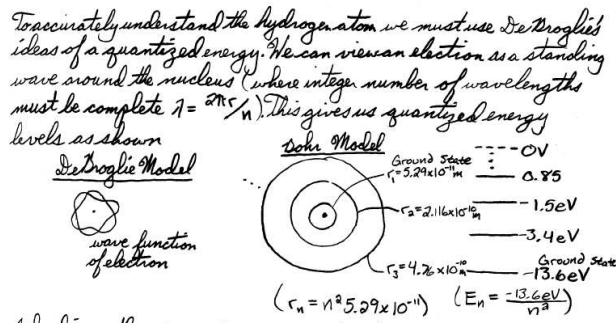 To accurately understand the hydrogen atom we must use DeBroglie's
ideas of a quantized energy. We can view an electron as a standing
wave around the nucleus (where integer number of wavelengths
must be complete λ = 2πr/n). This gives us quantized energy
levels as shown
DeBroglie Model
wave function
of electron
Bohr Model
Ground State
r₁=5.29x10⁻¹¹m
r₂=2.116x10⁻¹⁰m
r₃=4.76x10⁻¹⁰m
(rₙ = n²5.29x10⁻¹¹)
0V
0.85
-1.5eV
-3.4eV
Ground State
-13.6eV
(Eₙ = -13.6eV/n²)